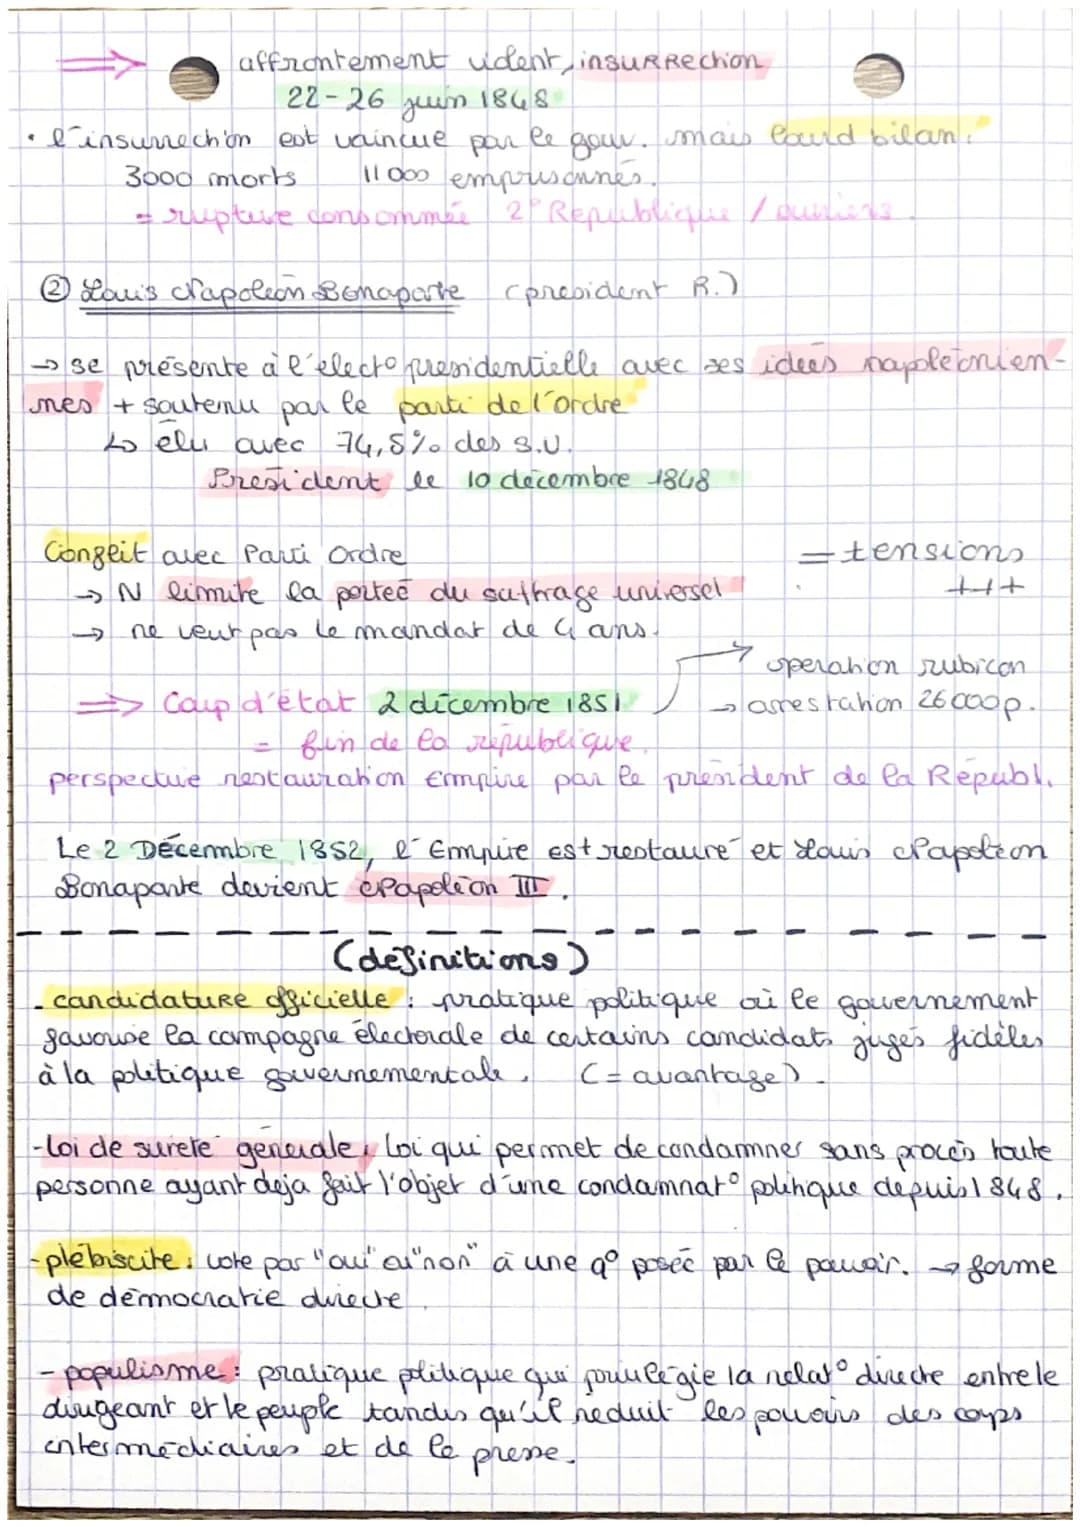 ⇒ affrontement violent, insurrection
22-26 juin 1848
• l'insurrection est vaincue par le gouv. mais lourd bilan :
3000 morts 11 000 emprisonnés.
= rupture consommée 2° Republique / ouvriers.
② Louis Napoléon Bonaparte (president R.)
→ se présente à l'elect° presidentielle avec ses idées napoléonien-
nes + soutenu par le parti de l'ordre
↳ élu avec 74,5% des S.U.
President le 10 décembre 1848
Conflit avec Parti Ordre = tensions
→ N limite la portée du suffrage universel +++
→ ne veut pas le mandat de 4 ans.
→ operation rubicon
⇒ Coup d'état 2 décembre 1851 → arrestation 26000p.
= fin de la république.
perspective restauration Empire par le président de la Républ.
Le 2 Décembre 1852, l'Empire est restauré et Louis Napoléon
Bonaparte devient Napoléon III.
(définitions)
- candidature officielle : pratique politique où le gouvernement
favorise la campagne électorale de certains candidats jugés fidèles
à la politique gouvernementale. (= avantage).
- loi de sureté génerale, loi qui permet de condamner sans procès toute
personne ayant deja fait l'objet d'une condamnat° politique depuis 1848.
- plébiscite : vote par "oui" ou "non" à une q° posée par le pouvoir. → forme
de démocratie directe.
- populisme : pratique politique qui privilégie la relat° directe entre le
dirigeant et le peuple tandis qu'il reduit les pouvoirs des corps
intermédiaires et de la presse.